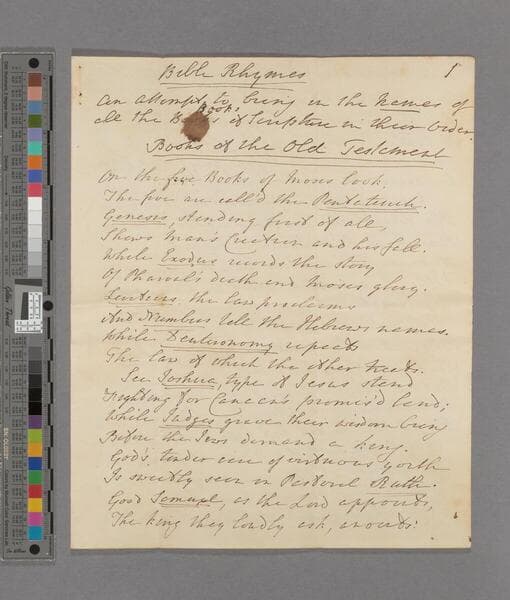 1
Bible Rhymes
An attempt to bring in the Names of
Books
all the of Scripture in their Order
Books of the Old Testament
On the five Books of Moses look.
The five are call'd the Pentateuch.
Genesis, standing first of all,
Shews Man's Creation and his fall.
While Exodus records the story
Of Pharoah's death and Moses glory.
Leviticus, the law proclaims
And Numbers tell the Hebrews names.
While Deuteronomy repeats
The law of which the other treats.
See Joshua, type of Jesus stand
Fighting for Canaan's promis'd land;
While Judges grave their wisdom bring
Before the Jews demand a king.
God's tender care of virtuous youth
Is sweetly seen in Pastoral Ruth.
Good Samuel, as the Lord appoints,
The king they loudly ask, anoints: